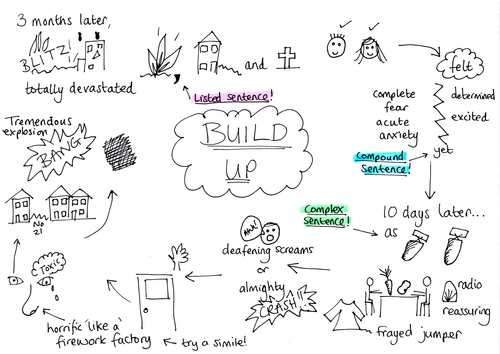 3 months later,
BLITZ!
totally devastated
, and
Listed sentence!
felt
complete
fear
acute
anxiety
determined
excited
yet
Compound
Sentence!
BUILD
UP
Tremendous
explosion
BANG
No
21
Complex
Sentence!
10 days later...
as
Ahh!
deafening screams
or
almighty
CRASH!!
radio
reassuring
frayed jumper
try a simile!
TOXIC
horrific 'like a'
firework factory